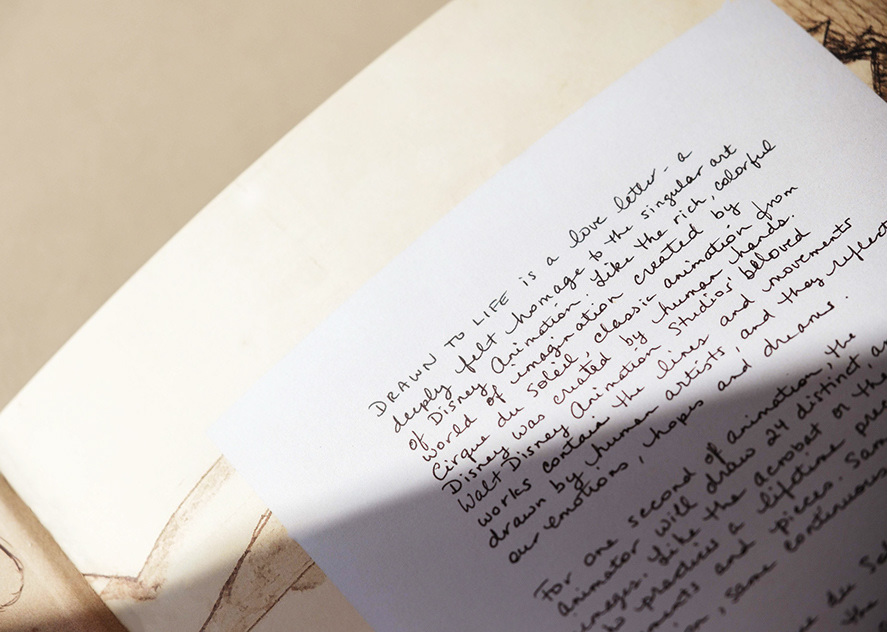 DRAWN TO LIFE is a love letter - a
deeply felt homage to the singular art
of Disney Animation. Like the rich, colorful
world of imagination created by
Cirque du Soleil, classic animation from
Disney was created by human hands.
Walt Disney Animation Studios' beloved
works contain the lines and movements
drawn by human artists, and they reflect
our emotions, hopes and dreams.
For one second of animation, the
animator will draw 24 distinct
images. Like the acrobat or the
to practice a lifetime
and pieces.
same continuous
du
the